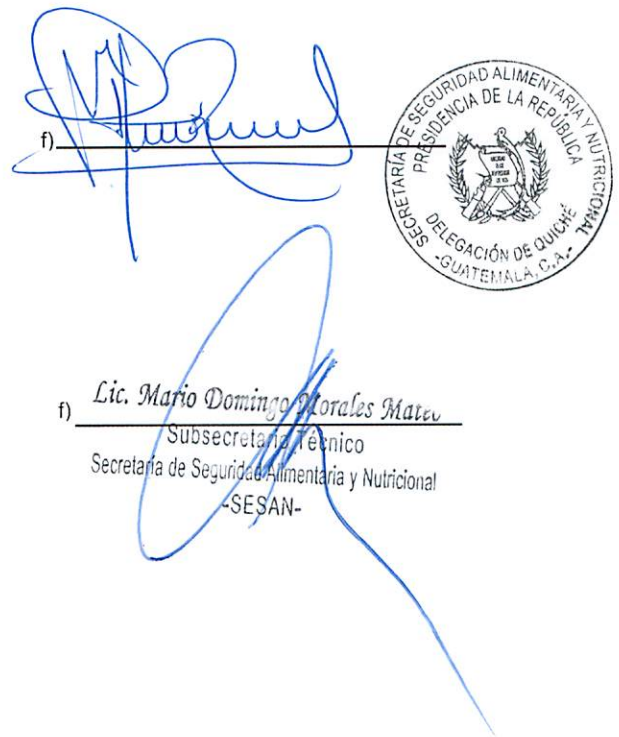 f)
SECRETARÍA DE SEGURIDAD ALIMENTARIA Y NUTRICIONAL
PRESIDENCIA DE LA REPÚBLICA
DELEGACIÓN DE QUICHÉ
-GUATEMALA, C.A.-
f) Lic. Mario Domingo Morales Mateo
Subsecretario Técnico
Secretaría de Seguridad Alimentaria y Nutricional
-SESAN-